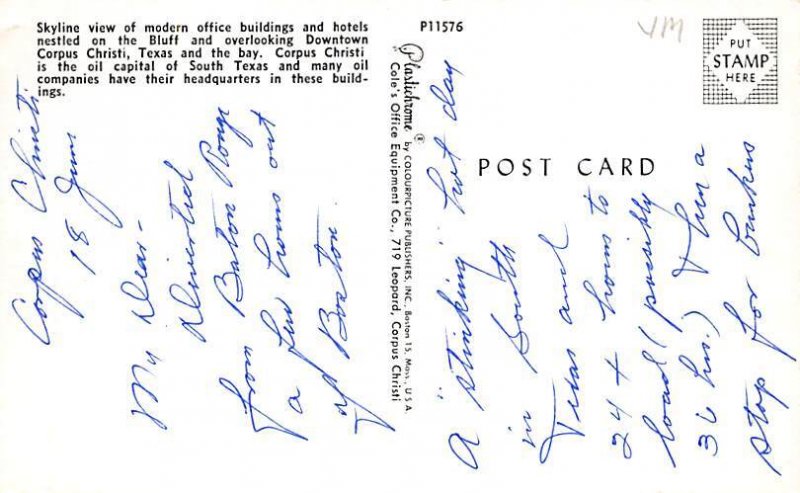 Skyline view of modern office buildings and hotels
nestled on the Bluff and overlooking Downtown
Corpus Christi, Texas and the bay. Corpus Christi
is the oil capital of South Texas and many oil
companies have their headquarters in these build-
ings.
P11576
VM
PUT
STAMP
HERE
POST CARD
Plastichrome ® by COLOURPICTURE PUBLISHERS, INC., Boston 15, Mass., U.S.A.
Cole's Office Equipment Co., 719 Leopard, Corpus Christi
Corpus Christi
18 June
My Dear-
Diverted
from Baton Rouge
a few hours out
of Boston.
A "stinking" hot day
in South
Texas and
24 + hours to
load (possibly
36 hrs.) + then a
stop for bunkers